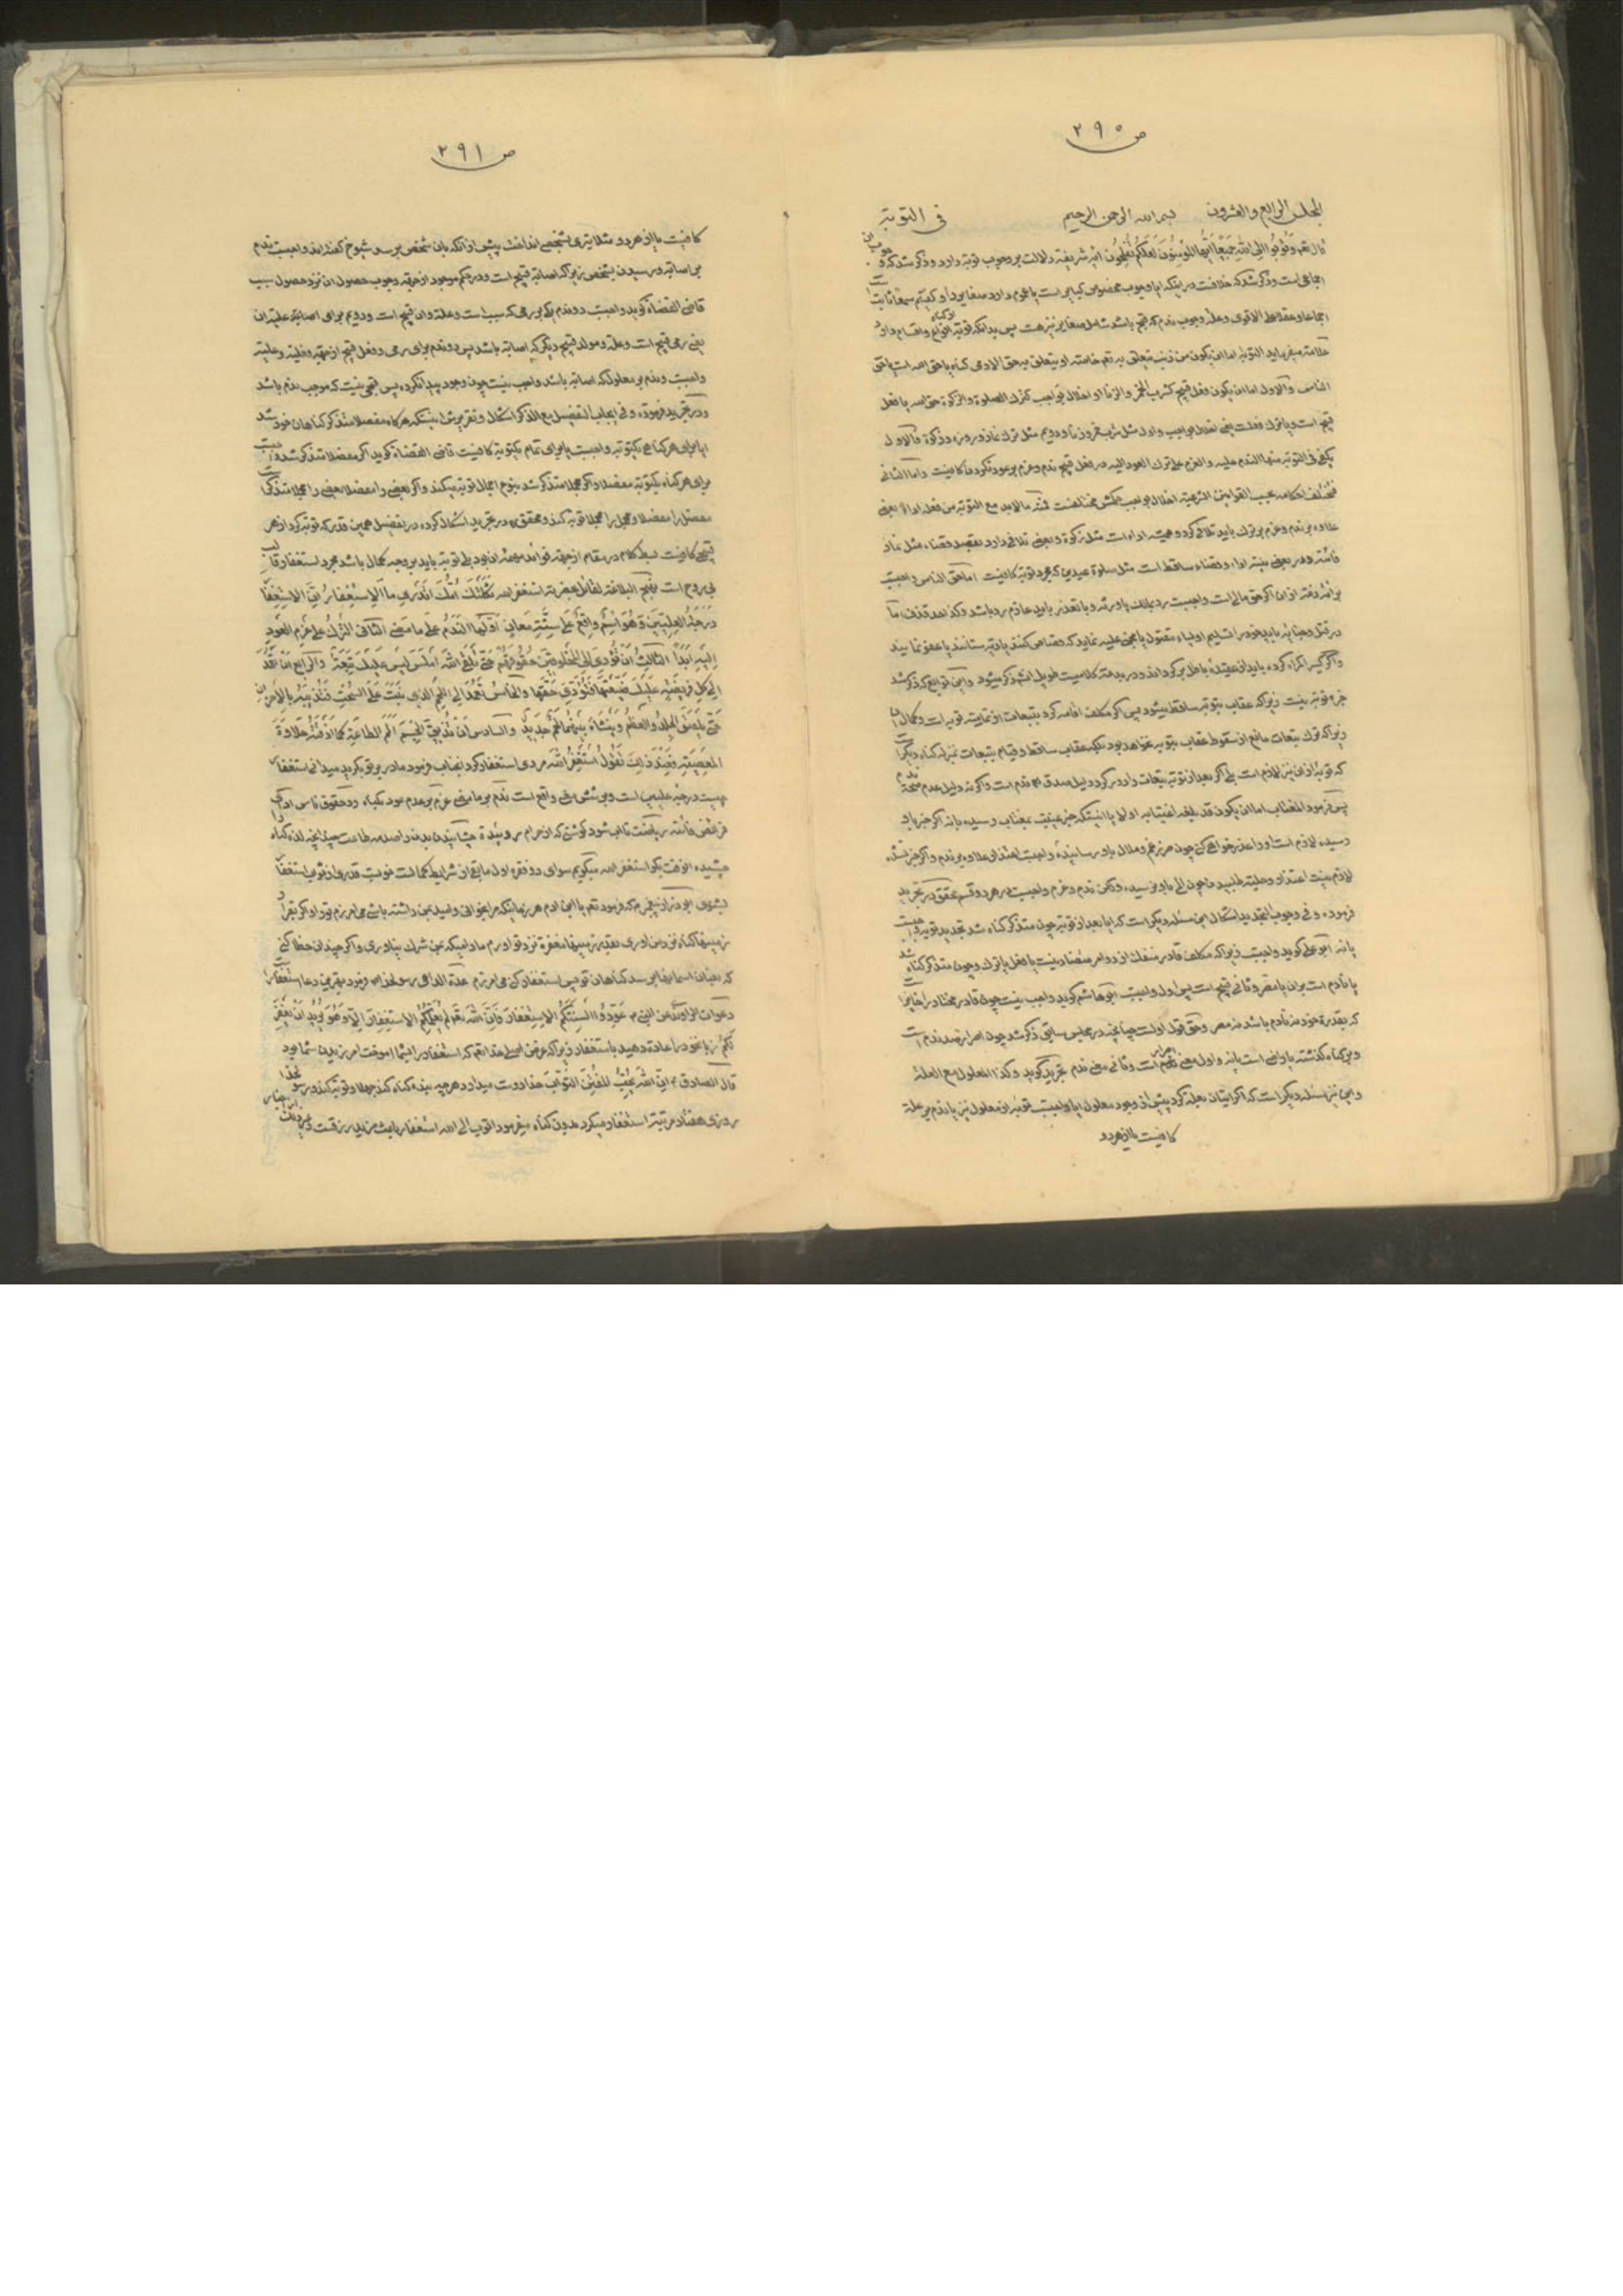 ص ٢٩٠
المجلس الرابع والعشرون بسم الله الرحمن الرحیم فی التوبة
قال تعم وتوبوا الی الله جمیعا ایها المؤمنون لعلکم تفلحون ایه شریفه دلالت بر وجوب توبه دارد وذکر شد که
اجماعی است وذکر شد که خلافست در اینکه ایا وجوب مخصوص کبایر است یا عموم دارد صغایر را وکفتیم سمعا ثابت
اجماعا وعقلا علی الاقوی وعلة وجوب ندم که قبح باشد شامل صغایر نیز هست پس بدانکه توبه انواع واقسام دارد
علامه میفرماید التوبة اما ان یکون من ذنب یتعلق به تعم خاصته او یتعلق به حق الادمی کناه یا حق الله است یا حق
الناس والاول اما ان یکون فعل قبیح کشرب الخمر والزنا او اخلال بواجب کترک الصلوة والزکوة حق الله یا فعل
قبیح است ویا ترک فعلست یعنی اخلال بواجب واول مثل شرب خمر وزنا ودویم مثل ترک نماز وروزه وزکوة فالاول
یکفی فی التوبه منها الندم علیه والعزم علی ترک العود الیه در فعل قبیح ندم وعزم بر عود نکردن کافیست واما الثانی
فتختلف احکامه بحسب القوانین الشرعیة اخلال بواجب حکمش مختلفست فمنه ما لابد مع التوبة من فعله اداءً یعنی
علاوه بر ندم وعزم بر ترک باید تلافی کرد وهمیشه اداء است مثل زکوة وبعضی تلافی دارد بقصد قضاء مثل نماز
فائته ودر بعضی نیست اداء وقضاء ساقط است مثل صلوة عیدین که مجرد توبه کافیست اما حق الناس واجبست
برائت ذمه از ان اکر حق مالی است واجبست رد بمالک یا ورثه وبا تعذر باید عازم رد باشد وکذا حد قذف اما
در قتل وجنایت باید خود را تسلیم اولیاء مقتول یا مجنی علیه نماید که قصاص کنند یا دیه ستانند یا عفو نمایند
واکر کسیرا کمراه کرده باید از عقیده باطل برکرداند ودر بدعت کلامیست طویل انشم ذکر میشود واین توابع که ذکر شد
جزء توبه نیست زیرا که عقاب بتوبه ساقط میشود پس اکر مکلف اقامه کرد بتبعات از تمامیت توبه است وکمال
زیرا که ترک تبعات مانع از سقوط عقاب بتوبه نخواهد بود بلکه عقاب ساقط وقیام بتبعات بمنزله کناه دیکر
که توبه از ان نیز لازم است بلی اکر بعد از توبه بتبعات وارد کردد دلیل صدق ندم است واکر نه دلیل عدم صحة
پس فرمود المغتاب اما ان یکون قد بلغه اغتیابه او لا یا انیستکه خبر غیبت بمغتاب رسیده یا نه اکر خبر باو
رسیده لازم است او را عذر خواهی کن چون ضرر غم وملال باو رسانیده واجبست اعتذار علاوه بر ندم واکر خبر نشده
لازم نیست اعتذار وحلیت طلبید ما چون الم باو نرسیده ولکن ندم وعزم واجبست در هر دو قسم محقق در تجرید
فرموده وفی وجوب التجدید اشکال این مسئله دیکر است که ایا بعد از توبه چون متذکر کناه شد تجدید توبه واجبست
یا نه ابو علی کوید واجبست زیرا که مکلف قادر منفک از دو امر متضاد نیست یا فعل یا ترک وچون متذکر کناه شد
یا نادم است بر ان یا مصر وثانی قبیح است پس اول واجبست ابو هاشم کوید واجب نیست چون قادر مختار
که بقدرة خود نه نادم باشد نه مصر وحق قول اولست چنانچه در مجلس سابق ذکر شد چون اصرار ضد ندم است
وبر کناه کذشته یا راضی است یا نه واول معنی اصرار است وثانی معنی ندم تجرید کوید وکذا المعلول مع العلة
واین نیز مسئله دیکر است که اکر اتیان بعلت کرد پیش از وجود معلول ایا واجبست توبه از معلول نیز یا ندم بر علت
کافیست یا از هر دو
ص ٢٩١
کافیست یا از هر دو مثلا تیری بشخصی انداخت پیش از انکه بان شخص برسد شیوخ کفته اند واجبست ندم
بر اصابه در رسیدن بشخص زیرا که اصابه قبیح است ودر حکم موجود از جهة وجوب حصول ان نزد حصول سبب
قاضی القضاة کوید واجبست دو ندم یکی بر رمی که سبب است وعلت وان قبیح است ودویم برای اصابة علیت ان
یعنی رمی قبیح است وعلة ومولد قبیح دیکر که اصابه باشد پس دو ندم برای رمی ودو فعل قبیح از جهة فعلیه وعلیت
واجبست وندم بر معلول که اصابه باشد واجب نیست چون وجود پیدا نکرده پس قبحی نیست که موجب ندم باشد
ودر تجرید فرموده وفی ایجاب التفصیل مع الذکر اشکال وتقریرش اینستکه هرکاه مفصلا متذکر کناهان خود شد
ایا برای هر کناهی یکتوبه واجبست یا برای تمام یکتوبه کافیست قاضی القضاة کوید اکر مفصلا متذکر شد واجبست
برای هر کناه یکتوبه مفصلا واکر مجملا متذکر شد بنوع اجمال توبه میکند واکر بعضی را مفصلا بعضی را مجملا متذکر
مفصل را مفصلا ومجمل را مجملا توبه کند ومحقق در تجرید اشکال کرده در تفصیل همین قدر که توبه کرد از هر
قبیحی کافیست بسط کلام در مقام از جهة فوائد مهمه ان بود بلی توبه باید بر وجه کمال باشد مجرد استغفار قالب
بی روح است نهج البلاغة لقائل بحضرته استغفر الله ثکلتک امک اتدری ما الاستغفار ان الاستغفار
درجة العلیین وهو اسم واقع علی ستة معان اولها الندم علی ما مضی الثانی الترک علی عزم العود
الیه ابدا الثالث ان تؤدی الی المخلوقین حقوقهم حتی تلقی الله املس لیس علیک تبعة والرابع ان تعمد
الی کل فریضة علیک ضیعتها فتؤدی حقها والخامس تعمد الی اللحم الذی ینبت علی السحت فتذیبه بالاحزان
حتی یلصق الجلد والعظم وینشاء بینهما لحم جدید والسادس ان تذیق الجسم الم الطاعة کما اذقته حلاوة
المعصیة فعند ذلک تقول استغفر الله مردی استغفار کرد انجناب فرمود مادر بر تو بکرید میدانی استغفار
چیست درجه علیین است وبر شش معنی واقع است ندم بر ما مضی عزم بر عدم عود بکناه ورد حقوق ناس
فرائض فائته ریاضت تا اب شود کوشتی که از حرام روئیده چشانیدن بدن را صدمه طاعت چنانچه لذت کناه
چشیده انوقت بکو استغفر الله میکویم سوای دو فقره اول مابقی از شرایط کمالست
بشنوی ابو ذر از پیغمبر م که فرمود تعم یا ابن ادم هر زمانیکه مرا بخوانی وامید بمن داشته باشی می امرزم تو را واکر بقدر
زمینها کناه نزد من اوری بقدر زمینها مغفرة نزد تو اورم مادامیکه بمن شرک نیاوری واکر چندان خطا کنی
که بعنان اسما برسد کناهان تو پس استغفار کنی می امرزم عدة الداعی رسولخدا فرمود بهترین دعا استغفار
دعوات الراوندی عن النبی عودوا السنتکم الاستغفار فان الله تعم لم یعلمکم الاستغفار الا وهو یرید ان یغفر
لکم زبانخود را عادة دهید باستغفار زیرا که غرض اصلی خدا تعم که استغفار را بشما اموخت امرزیدن شما بود
قال الصادق ان الله یحب المفتن التواب خدا دوست میدارد هر چه بنده کناه کند جهلا وتوبه کند رسولخدا
روزی هفتاد مرتبه استغفار میکرد بدون کناه میفرمود اتوب الی الله استغفار باعث مزید رزقست